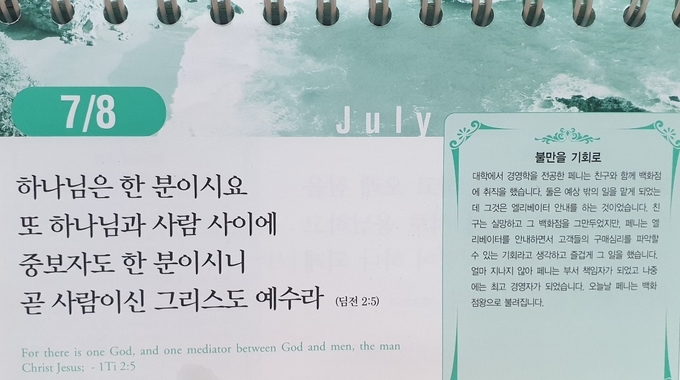 7/8
July
하나님은 한 분이시요
또 하나님과 사람 사이에
중보자도 한 분이시니
곧 사람이신 그리스도 예수라 (딤전 2:5)
For there is one God, and one mediator between God and men, the man
Christ Jesus; - 1Ti 2:5
불만을 기회로
대학에서 경영학을 전공한 페니는 친구와 함께 백화점
에 취직을 했습니다. 둘은 예상 밖의 일을 맡게 되었는
데 그것은 엘리베이터 안내를 하는 것이었습니다. 친
구는 실망하고 그 백화점을 그만두었지만, 페니는 엘
리베이터를 안내하면서 고객들의 구매심리를 파악할
수 있는 기회라고 생각하고 즐겁게 그 일을 했습니다.
얼마 지나지 않아 페니는 부서 책임자가 되었고 나중
에는 최고 경영자가 되었습니다. 오늘날 페니는 백화
점왕으로 불려집니다.